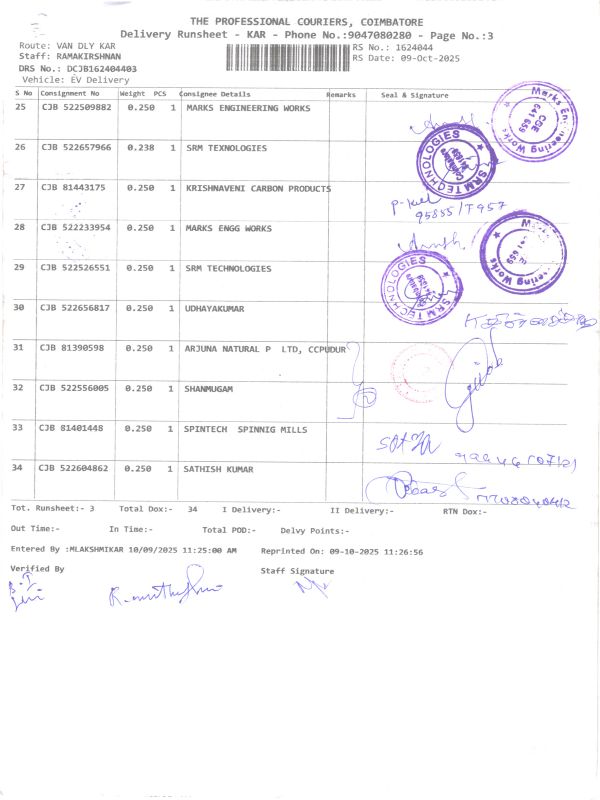 THE PROFESSIONAL COURIERS, COIMBATORE
Delivery Runsheet - KAR - Phone No.:9047080280 - Page No.:3
Route: VAN DLY KAR
RS No.: 1624044
Staff: RAMAKIRSHNAN
RS Date: 09-Oct-2025
DRS No.: DCJB162404403
Vehicle: EV Delivery
S No Consignment No Weight PCS Consignee Details Remarks Seal & Signature
25 CJB 522509882 0.250 1 MARKS ENGINEERING WORKS
Marks Engineering Works
CBE
641 659
26 CJB 522657966 0.238 1 SRM TEXNOLOGIES
SRM TECHNOLOGIES
27 CJB 81443175 0.250 1 KRISHNAVENI CARBON PRODUCTS
28 CJB 522233954 0.250 1 MARKS ENGG WORKS
29 CJB 522526551 0.250 1 SRM TECHNOLOGIES
SRM TECHNOLOGIES
30 CJB 522656817 0.250 1 UDHAYAKUMAR
31 CJB 81390598 0.250 1 ARJUNA NATURAL P LTD, CCPUDUR
32 CJB 522556005 0.250 1 SHANMUGAM
33 CJB 81401448 0.250 1 SPINTECH SPINNIG MILLS
34 CJB 522604862 0.250 1 SATHISH KUMAR
Tot. Runsheet:- 3 Total Dox:- 34 I Delivery:- II Delivery:- RTN Dox:-
Out Time:- In Time:- Total POD:- Delvy Points:-
Entered By :MLAKSHMIKAR 10/09/2025 11:25:00 AM Reprinted On: 09-10-2025 11:26:56
Verified By Staff Signature